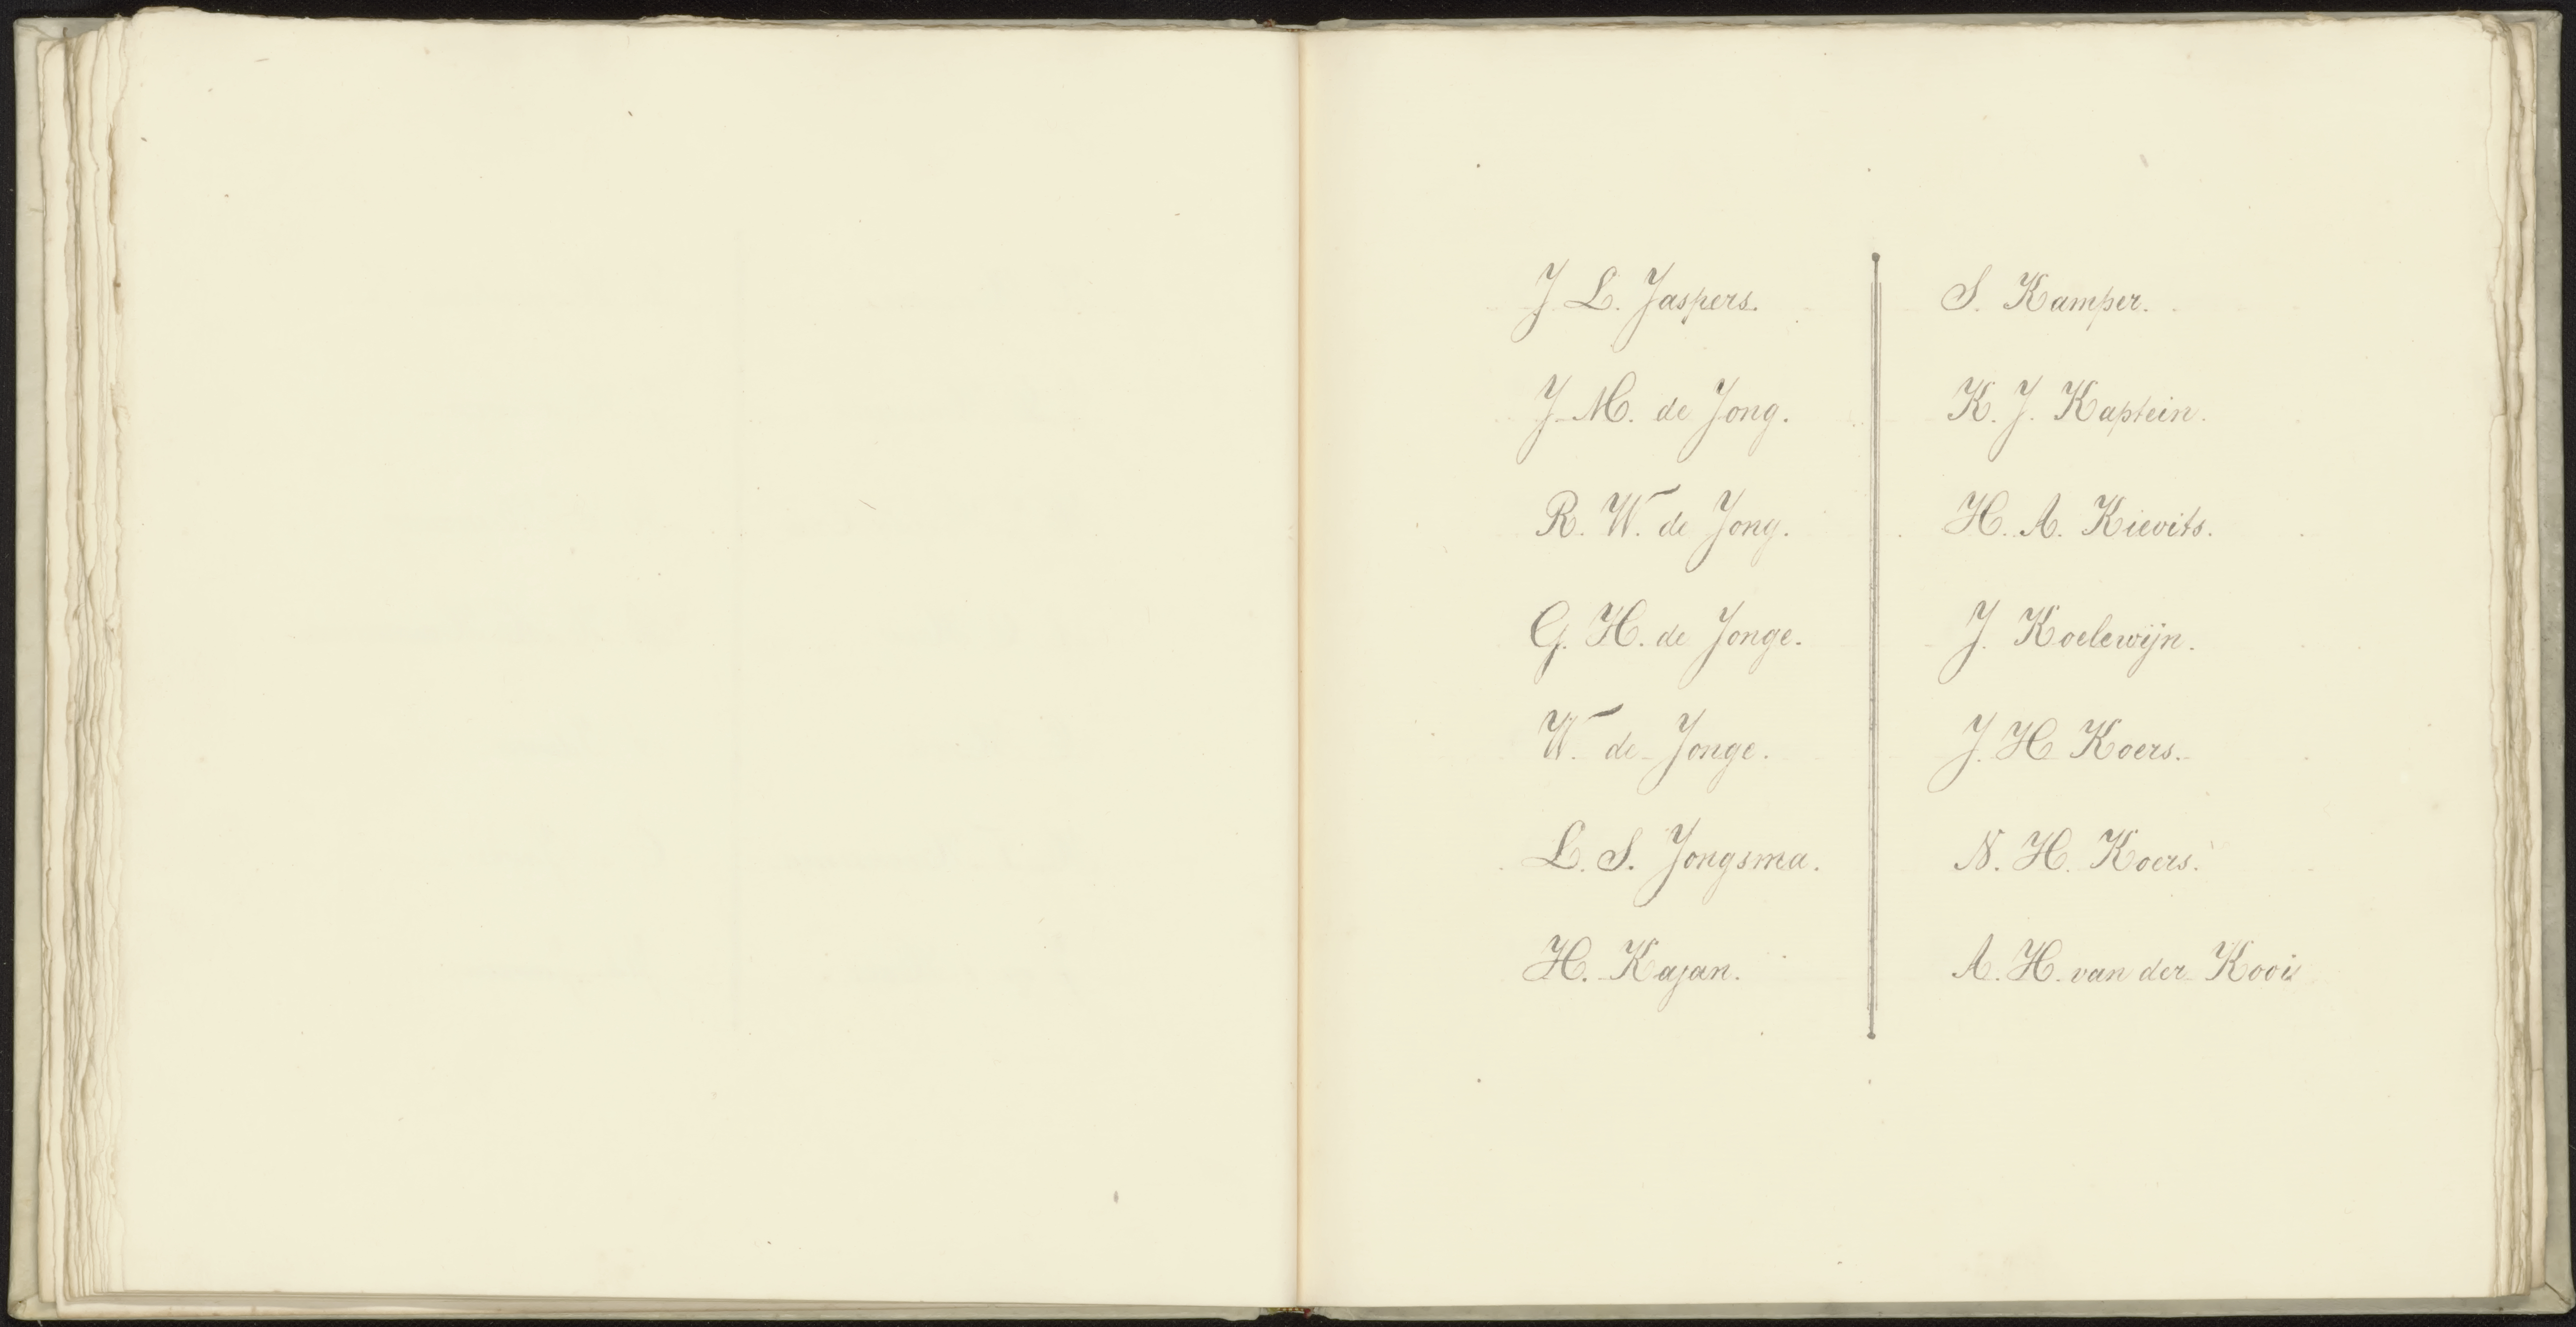 J. L. Jaspers.
J. M. de Jong.
R. W. de Jong.
G. H. de Jonge.
W. de Jonge.
L. S. Jongsma.
H. Kajan.
S. Kamper.
K. J. Kaptein.
H. A. Kievits.
J. Koelewijn.
J. H Koers.
N. H. Koers.
A. H. van der Kooi